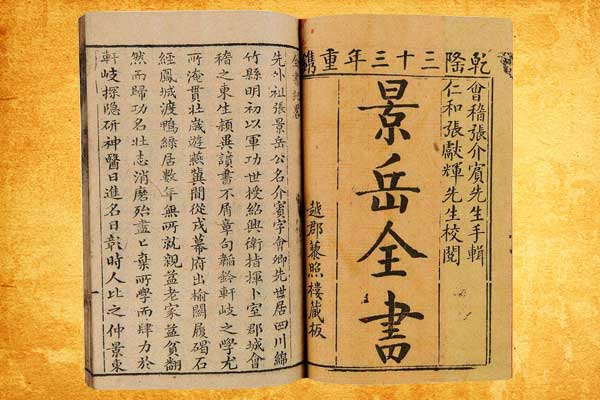 乾隆三十三年重鐫
會稽張介賓先生手輯
仁和張獻輝先生校閱
景岳全書
越郡藜照樓藏板
先外祖張景岳公名介賓字會卿先世居四川綿
竹縣明初以軍功世授紹興衛指揮卜室郡城會
稽之東生頴異讀書不屑章句韜鈐軒岐之學尤
所淹貫壯歲遊燕冀間從戎幕府出榆關履碣石
經鳳城渡鴨綠居數年無所就親益老家益貧翻
然而歸功名壯志消磨殆盡匕棄所學而肆力於
軒岐探隱研神醫日進名日彰時人比之仲景東